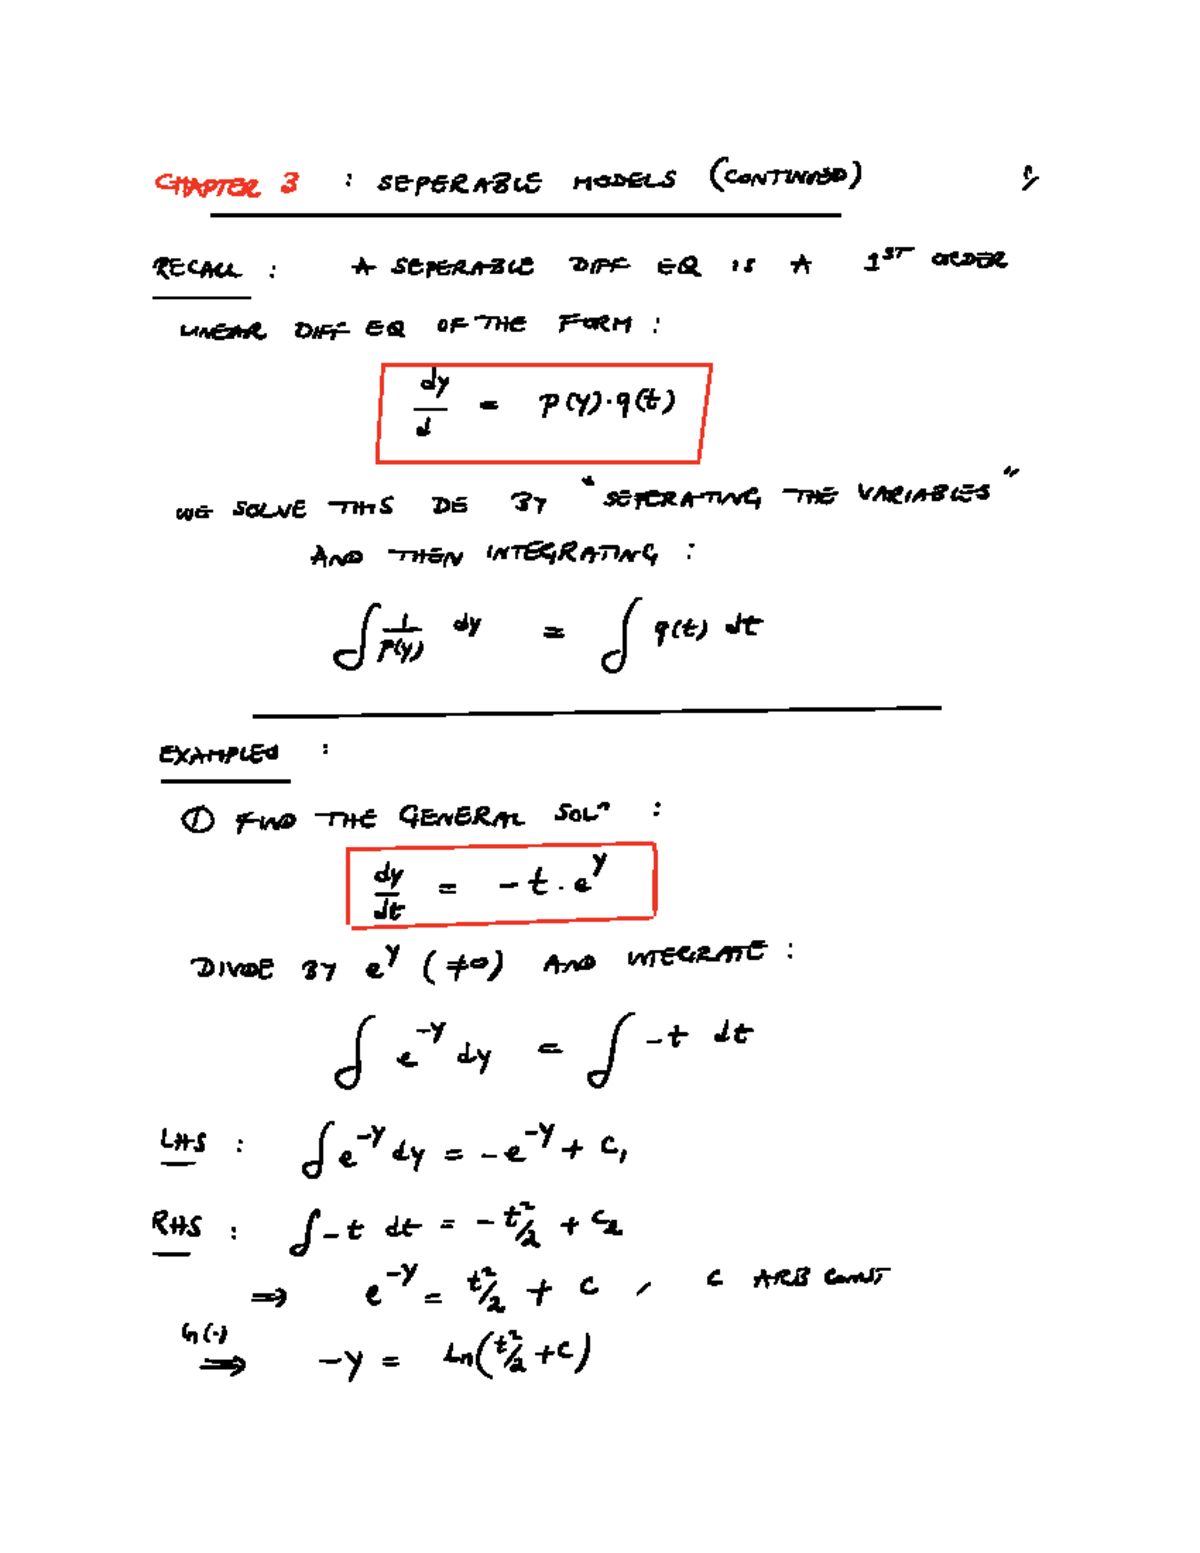 CHAPTER 3 : SEPERABLE MODELS (CONTINUED)
RECALL : A SEPERABLE DIFF EQ IS A 1ST ORDER
LINEAR DIFF EQ OF THE FORM :
dy/d = p(y)·q(t)
WE SOLVE THIS DE BY "SEPERATING THE VARIABLES"
AND THEN INTEGRATING :
∫ 1/p(y) dy = ∫ q(t) dt
EXAMPLES :
① FIND THE GENERAL SOLⁿ :
dy/dt = -t.e^y
DIVIDE BY e^y (≠0) AND INTEGRATE :
∫ e^-y dy = ∫ -t dt
LHS : ∫ e^-y dy = -e^-y + C₁
RHS : ∫ -t dt = -t²/2 + C₂
⟹ e^-y = t²/2 + C , C ARB CONST
ln(·) ⟹ -y = Ln(t²/2 + C)